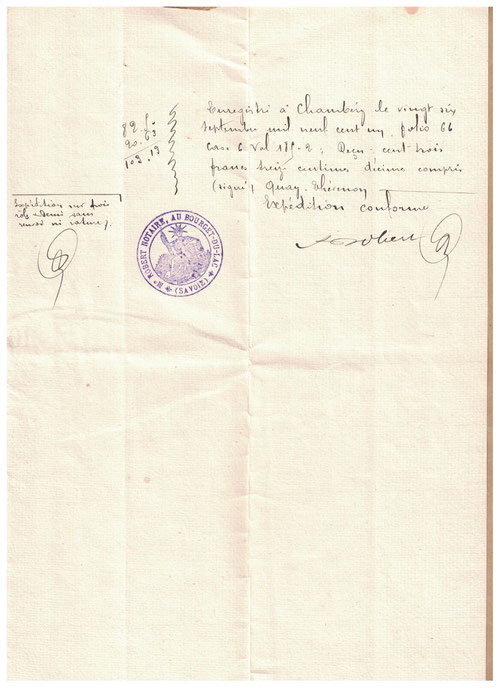 Enregistré à Chambéry le vingt six
septembre mil neuf cent un, folio 66
Case 6 Vol 189-2; Reçu: cent trois
francs treize centimes décime compris
(signé) Quay-Thévenon
Expédition conforme
82.50
20.63
103,13
Expédition sur trois
rôles demi sans
renvoi ni rature).
Mᵉ ROBERT NOTAIRE, AU BOURGET-DU-LAC
(SAVOIE)
Robert